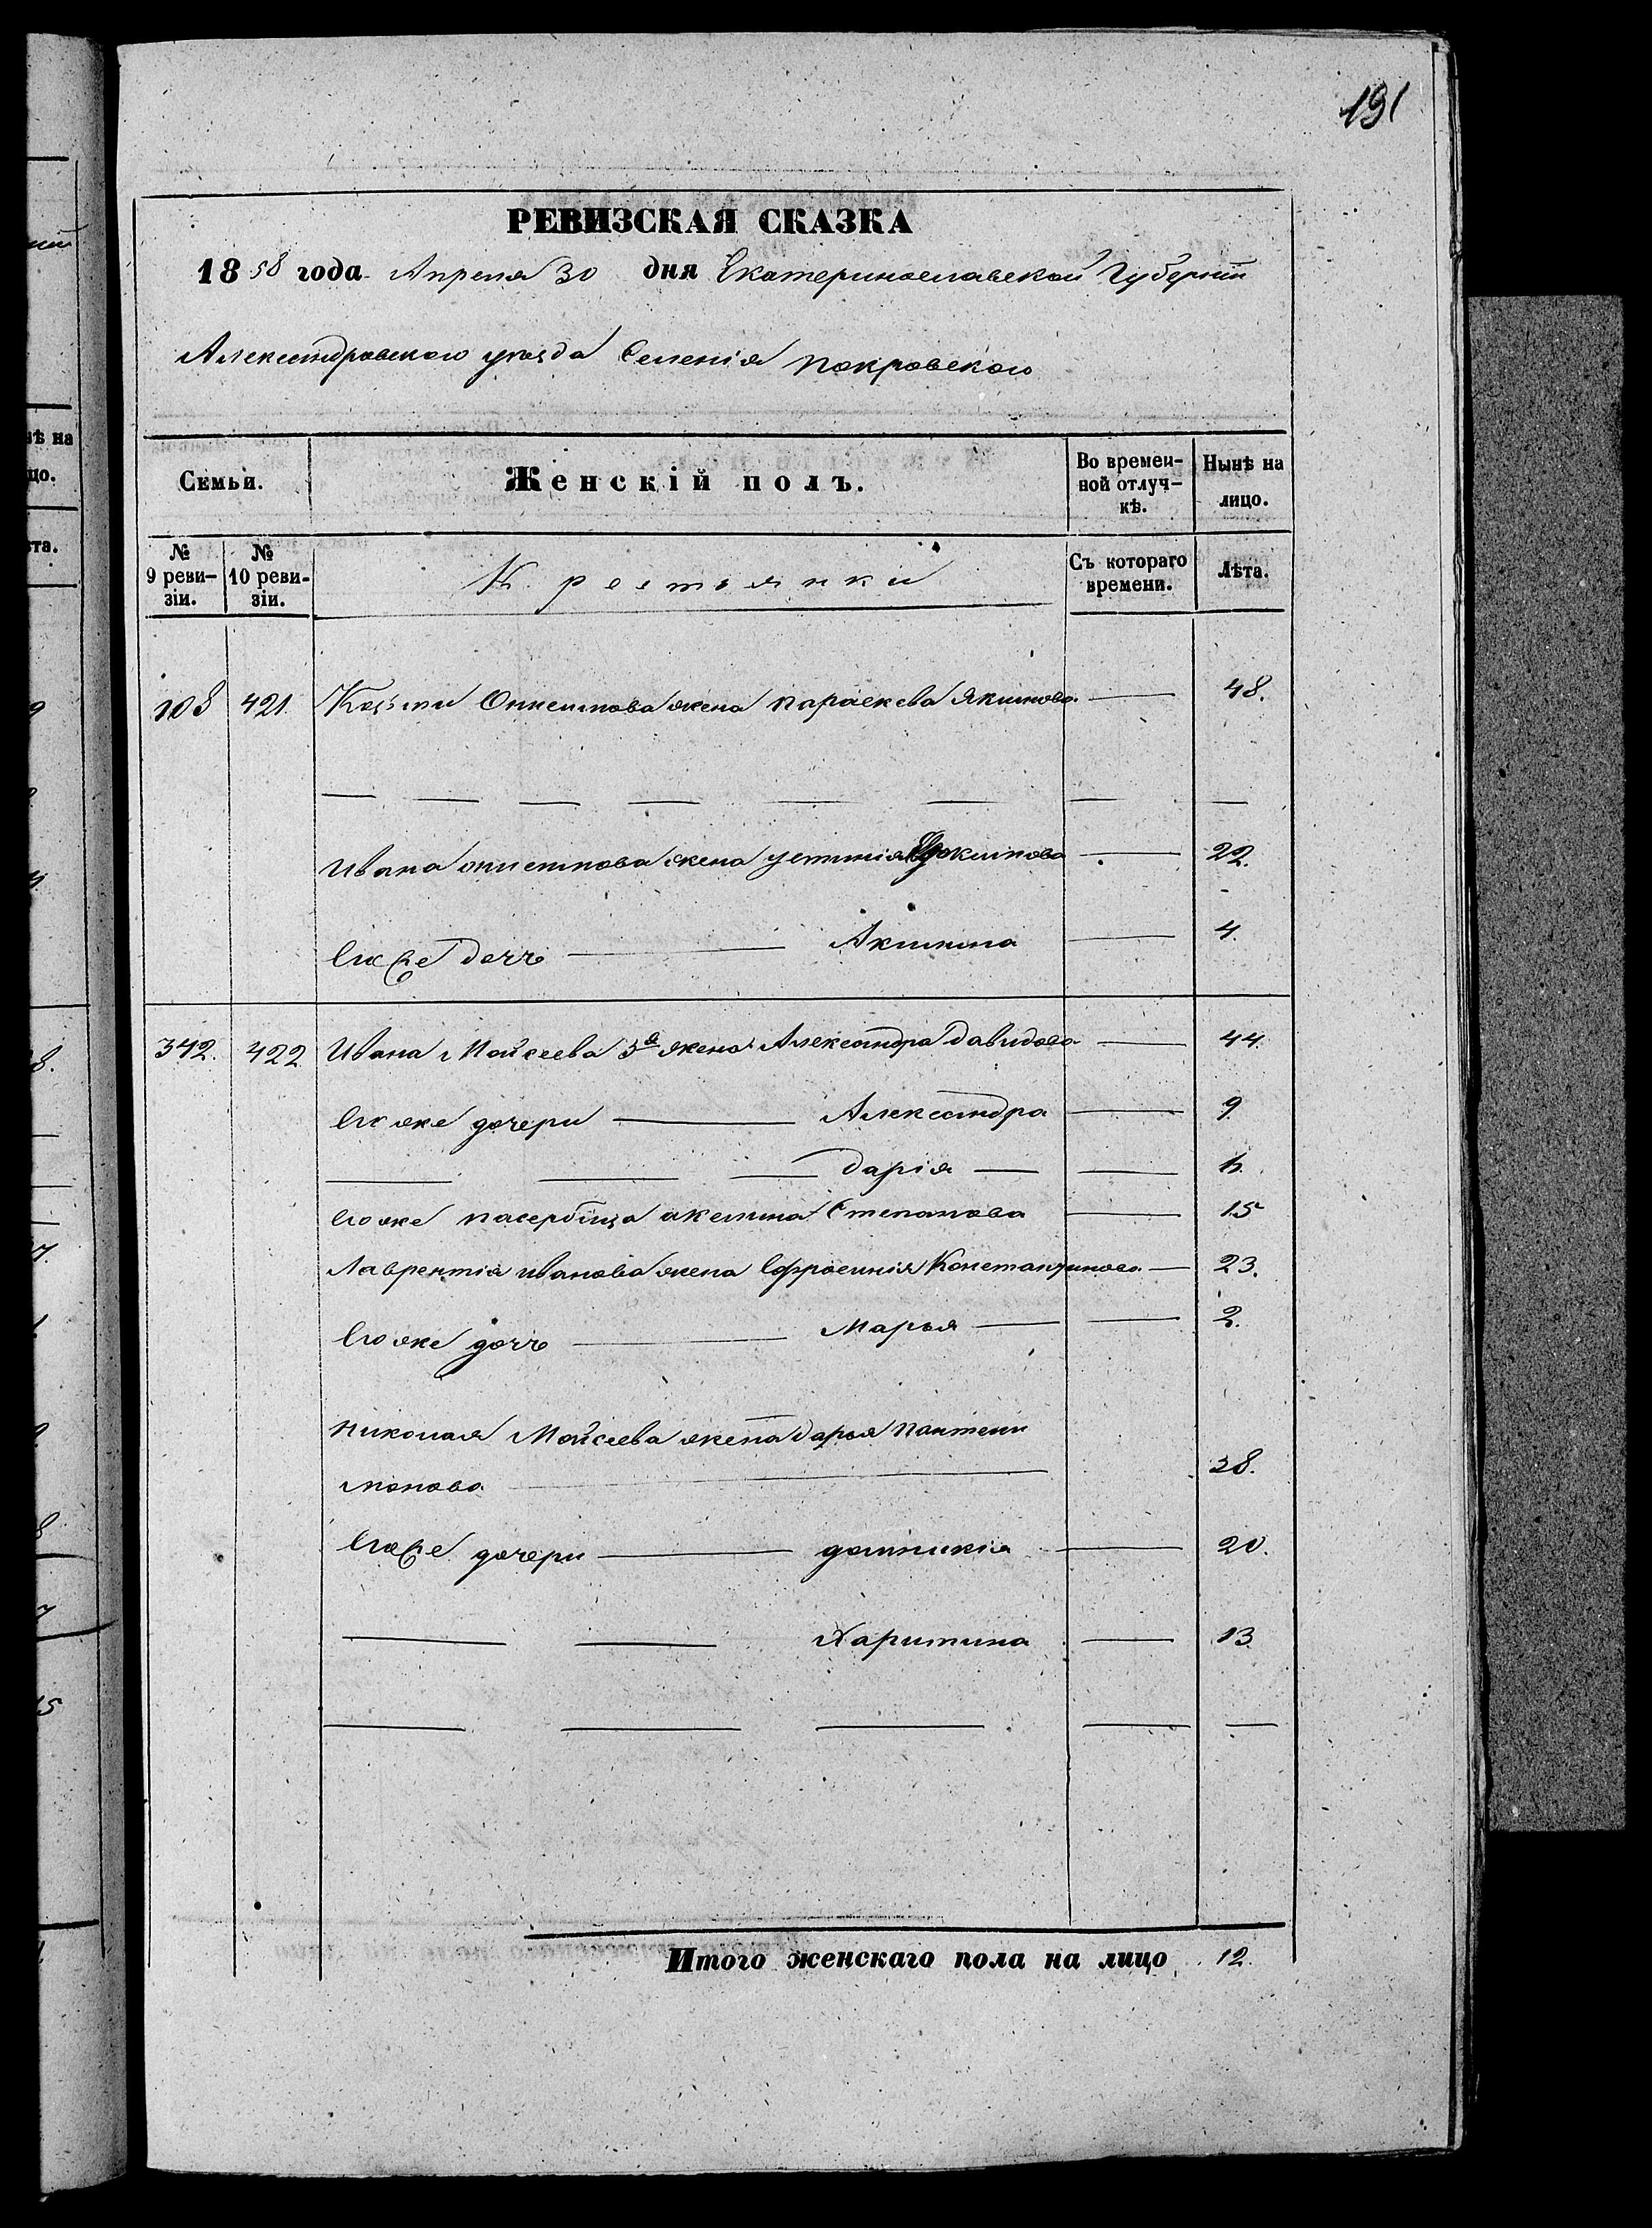 191
РЕВИЗСКАЯ СКАЗКА
1858 года Апреля 30 дня Екатеринославской Губерніи
Александровского уезда Селенія Покровского
Семьи. Женскій полъ. Во времен-ной отлуч-кѣ. Ныне на лицо.
№ 9 реви-зіи. № 10 реви-зіи. Крестьянки Съ котораго времени. Лѣта.
108 421 Онисимова жена параскева Якимова 48.
Ивана онисимова жена устинія 22.
Его же дочь Акилина 4.
342. 422 Ивана Мойсеева 3я жена Александра давидова 44.
Его же дочери Александра 9.
дарія
Его же пасербица акилина Степанова 15
Лаврентія иванова жена Ефросинія Константинова 23.
Его же дочь Марья 2.
Николая Мойсеева жена дарья пантели
монова 38.
Его же дочери домникія 20.
Харитина 13.
Итого женскаго пола на лицо 12.